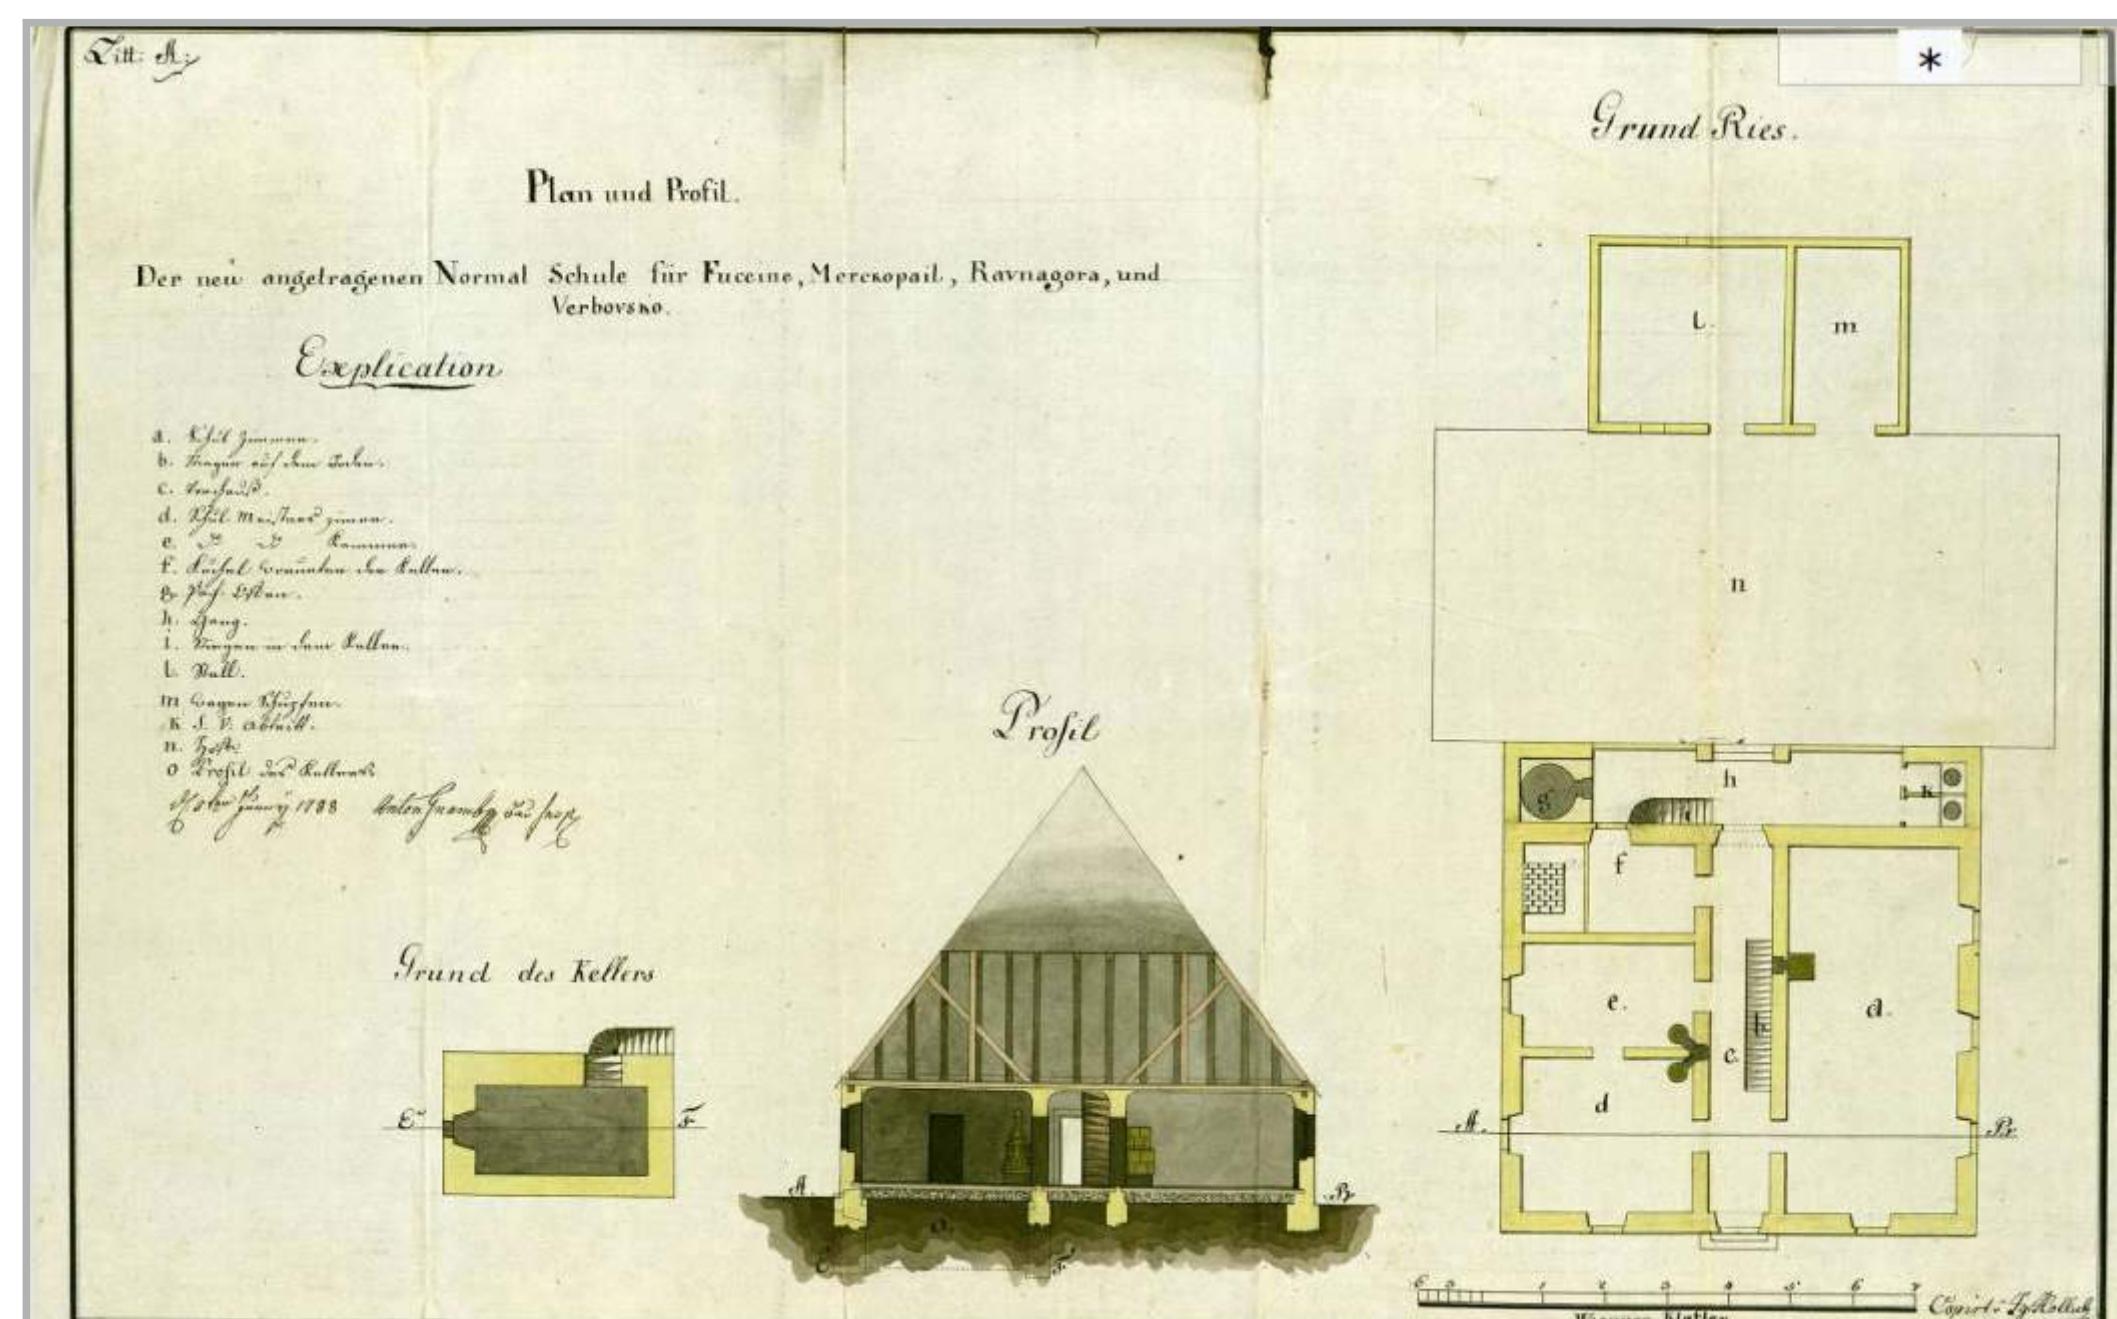 Litt: A:
*
Grund Ries.
Plan und Profil.
Der neü angetragenen Normal Schule für Fuccine, Merckopail, Ravnagora, und
Verbovsko.
Explication
a. Schul Zimmer.
b. Stiegen auf dem Boden.
c. Vorhauß.
d. Schul Meisters zimer.
e. do do Kammer.
f. Kuchel worunter der Keller.
g. Bach Offen.
h. Gang.
i. Stiegen in dem Keller.
l. Stall.
m Wagen Schupfen.
k S. V. Abtritt.
n. Hoff.
o Profil des Kellers
1788 Anton
Grund des Kellers
E F
Profil
A B
o.
C F
l. m
n
g h i k
f
e. c. b. a.
d
A. B
6 0 1 2 3 4 5 6 7
Wienner Klafter
Copirt